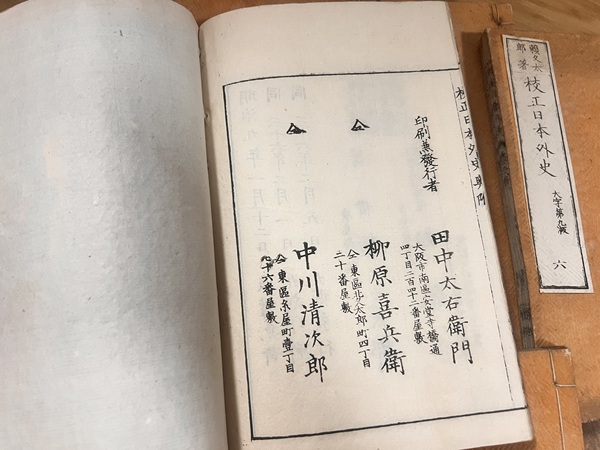 賴久太
郎著
校正日本外史
大字第九
六
校正日本外史
印刷兼發行者
田中太右衛門
大阪市南區安堂寺橋通
四丁目二百四十二番屋敷
仝
柳原喜兵衛
仝東區北久太郎町四丁目
二十番屋敷
仝
中川清次郎
仝東區糸屋町壹丁目
十六番屋敷